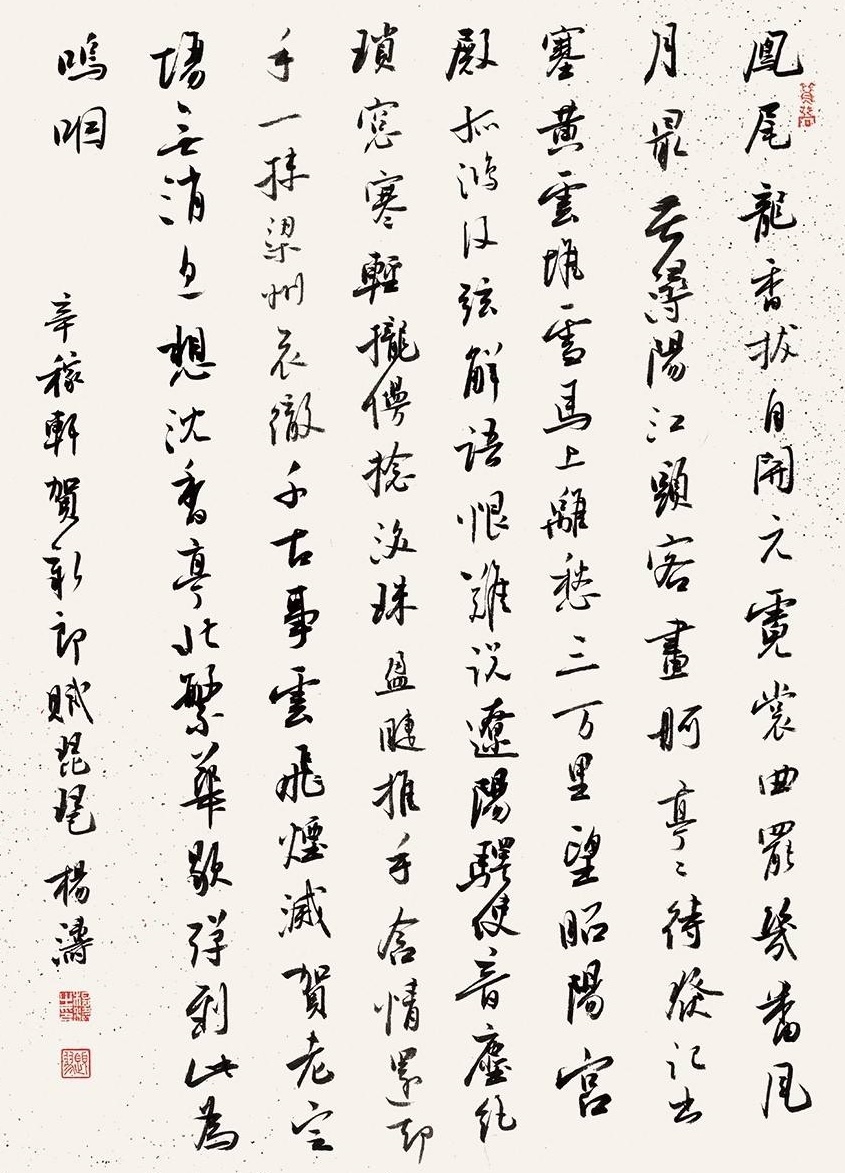 鳳尾龍香拔自開元霓裳曲罷幾番风
月最苦潯陽江頭客畫舸亭〻待發記出
塞黃雲堆雪馬上離愁三万里望昭陽宮
殿孤鴻沒弦解語恨難說遼陽驛使音塵絕
瑣窓寒輕攏慢捻淚珠盈睫推手含情還却
手一抹梁州哀徹千古事雲飛煙滅賀老定
場無消息想沈香亭北繁華歇彈到此為
嗚咽
辛稼軒賀新郎賦琵琶 楊濤